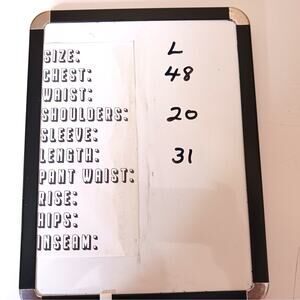 SIZE: L
CHEST: 48
WAIST:
SHOULDERS: 20
SLEEVE:
LENGTH: 31
PANT WAIST:
RISE:
HIPS:
INSEAM: